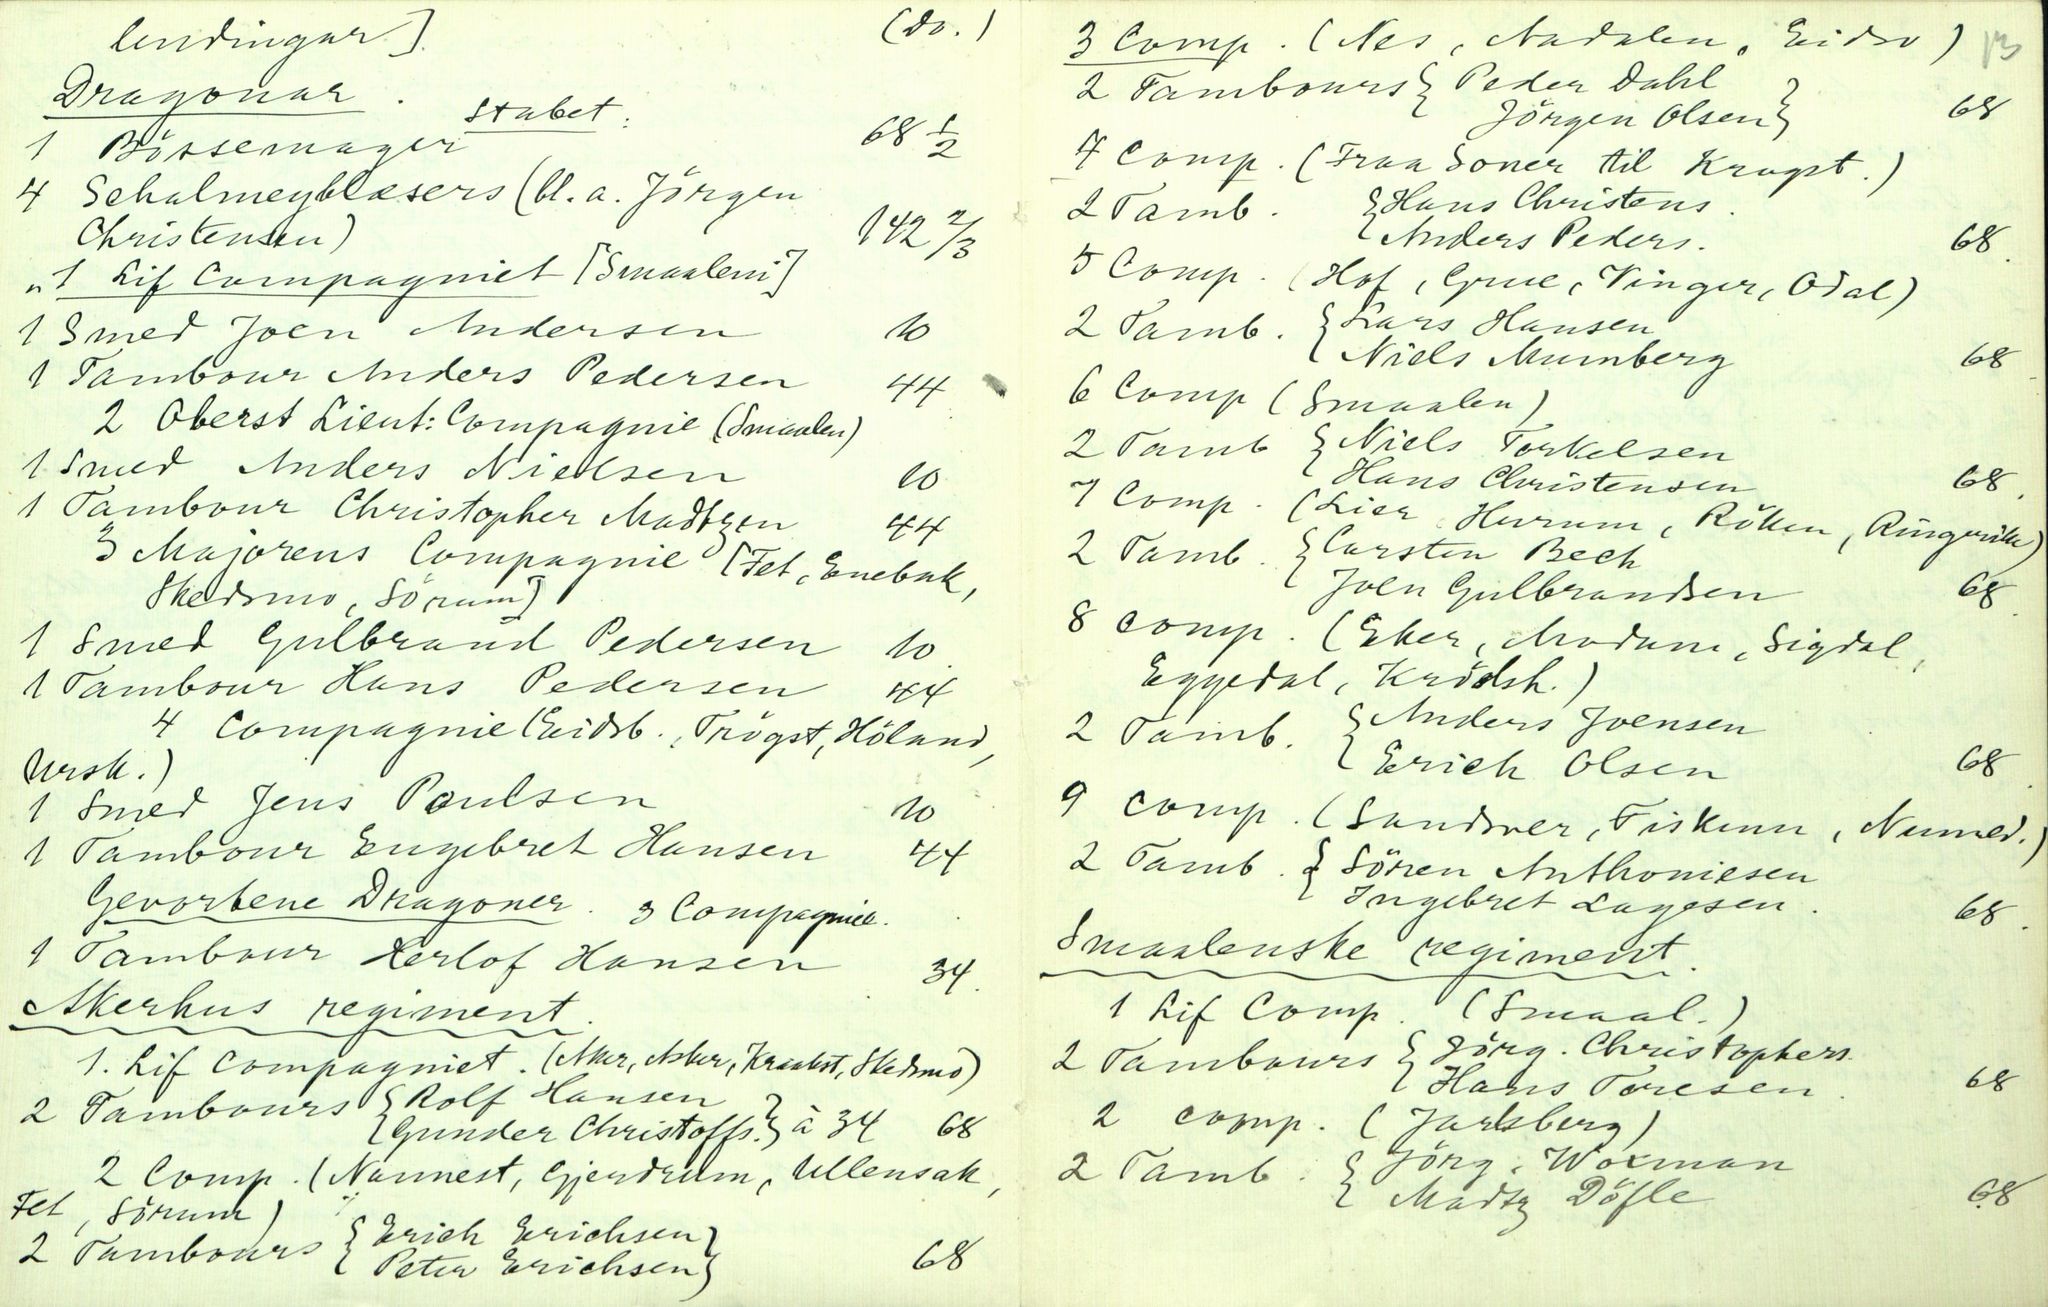 lendingar].
(Do.)
Dragonar.
Stabet:
1 Bössemager 68 1/2
4 Schalmeyblæsers (bl. a. Jörgen
Christensen) 142 2/3
"1 Lif Compagniet [Smaaleni]
1 Smed Joen Andersen 10
1 Tambour Anders Pedersen 44
2 Oberst Lieut: Compagnie (Smaalen)
1 Smed Anders Nielsen 10
1 Tambour Christopher Madtzen 44
3 Majorens Compagnie [Fet, Enebak,
Skedsmo, Sörum]
1 Smed Gulbrand Pedersen 10
1 Tambour Hans Pedersen 44
4 Compagnie (Eidsb., Trögst, Höland,
Ursk.)
1 Smed Jens Poulsen 10
1 Tambour Engebret Hansen 44
Gevorbene Dragoner. 3 Compagnie.
1 Tambour Herlof Hansen 34.
Akerhus regiment.
1. Lif Compagniet. (Aker, Asker, Kraakst, Skedsmo)
2 Tambours {Rolf Hansen
{Gunder Christoffs.} à 34 68
2 Comp. (Nannest, Gjerdrum, Ullensak,
Fet, Sörum)
2 Tambours {Erich Erichsen}
{Peter Erichsen} 68
13
3 Comp. (Nes, Aadalen, Eidsv)
2 Tambours {Peder Dahl}
Jörgen Olsen} 68
4 Comp. (Fraa Soner til Kragst.)
2 Tamb. {Hans Christens.
{Anders Peders. 68.
5 Comp. (Hof, Grue, Vinger, Odal)
2 Tamb. {Lars Hansen
{Niels Mumberg 68
6 Comp (Smaalen)
2 Tamb {Niels Torkelsen
{Hans Christensen 68.
7 Comp. (Lier, Hurum, Röken, Ringerike)
2 Tamb. {Carsten Bech
{Joen Gulbrandsen 68.
8 Comp. (Eker, Modum, Sigdal,
Eggedal, Krödsh.)
2 Tamb. {Anders Joensen
{Erich Olsen 68.
9 Comp. (Sandsver, Fiskum, Numed.)
2 Tamb. {Sören Anthoniesen
{Ingebret Lagesen. 68.
Smaalenske regiment.
1 Lif Comp. (Smaal.)
2 Tambours {Jörg. Christophers.
{Hans Toresen. 68
2 Comp. (Jarlsberg)
2 Tamb. {Jörg. Woxman
{Madtz Döfle 68